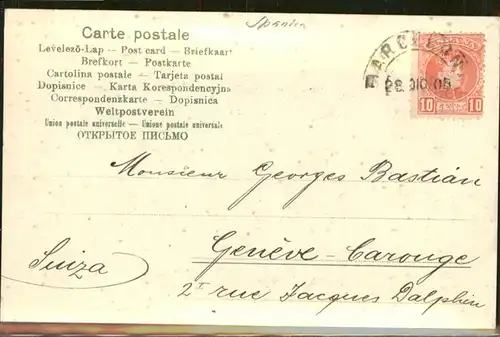 Spanien
Carte postale
Levelező-Lap — Post card — Briefkaart
Brefkort — Postkarte
Cartolina postale — Tarjeta postal
Dopisnice — Karta Korespondencyjna
Correspondenzkarte — Dopisnica
Weltpostverein
Union postale universelle — Unione postale universale
ОТКРЫТОЕ ПИСЬМО
BARCELONA
28 DIC 05
ESPAÑA
10 10
Monsieur Georges Bastian
Genève-Carouge
Suiza
2ᵗ rue Jacques Dalphin